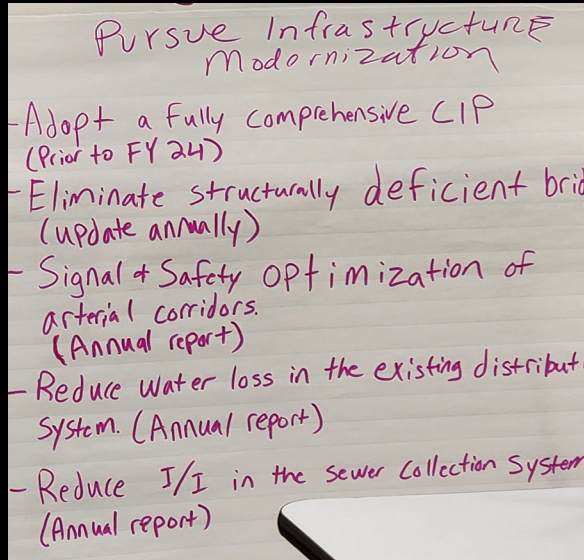 Pursue Infrastructure
Modornization
- Adopt a fully comprehensive CIP
(Prior to FY 24)
- Eliminate structurally deficient brid
(update annually)
- Signal & Safety optimization of
arterial corridors.
(Annual report)
- Reduce water loss in the existing distribut
system. (Annual report)
- Reduce I/I in the sewer collection system
(Annual report)